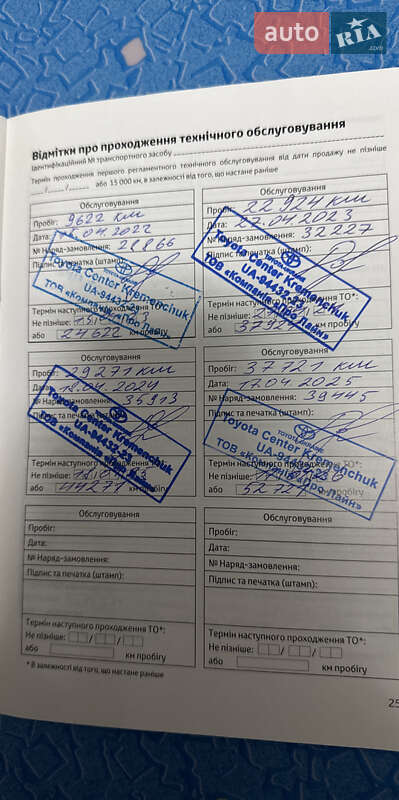 auto RIA.com
Відмітки про проходження технічного обслуговування
Ідентифікаційний № транспортного засобу
Термін проходження першого регламентного технічного обслуговування від дати продажу не пізніше
або 15 000 км, в залежності від того, що настане раніше
Обслуговування
Пробіг: 9622 км
Дата: .04.2022
№ Наряд-замовлення: 28866
Підпис та печатка (штамп):
Toyota Center Kremenchuk
UA-84432-23
ТОВ «Компанія «Про Лайн»
Термін наступного проходження ТО*:
Не пізніше:
або 24622 км пробігу
Обслуговування
Пробіг: 22 924 км
Дата: 27.04.2023
№ Наряд-замовлення: 32227
Підпис та печатка (штамп):
Toyota Center Kremenchuk
UA-84432-23
ТОВ «Компанія «Про Лайн»
Термін наступного проходження ТО*:
Не пізніше:
або 37924 км пробігу
Обслуговування
Пробіг: 29271 км
Дата: 18.04.2024
№ Наряд-замовлення: 35913
Підпис та печатка (штамп):
Toyota Center Kremenchuk
UA-84432-23
ТОВ «Компанія «Про Лайн»
Термін наступного проходження ТО*:
Не пізніше:
або 44271 км пробігу
Обслуговування
Пробіг: 37721 км
Дата: 17.04.2025
№ Наряд-замовлення: 39445
Підпис та печатка (штамп):
Toyota Center Kremenchuk
UA-84432-23
ТОВ «Компанія «Про Лайн»
Термін наступного проходження ТО*:
Не пізніше:
або 52721 км пробігу
Обслуговування
Пробіг:
Дата:
№ Наряд-замовлення:
Підпис та печатка (штамп):
Термін наступного проходження ТО*:
Не пізніше:
або км пробігу
Обслуговування
Пробіг:
Дата:
№ Наряд-замовлення:
Підпис та печатка (штамп):
Термін наступного проходження ТО*:
Не пізніше:
або км пробігу
* В залежності від того, що настане раніше
25